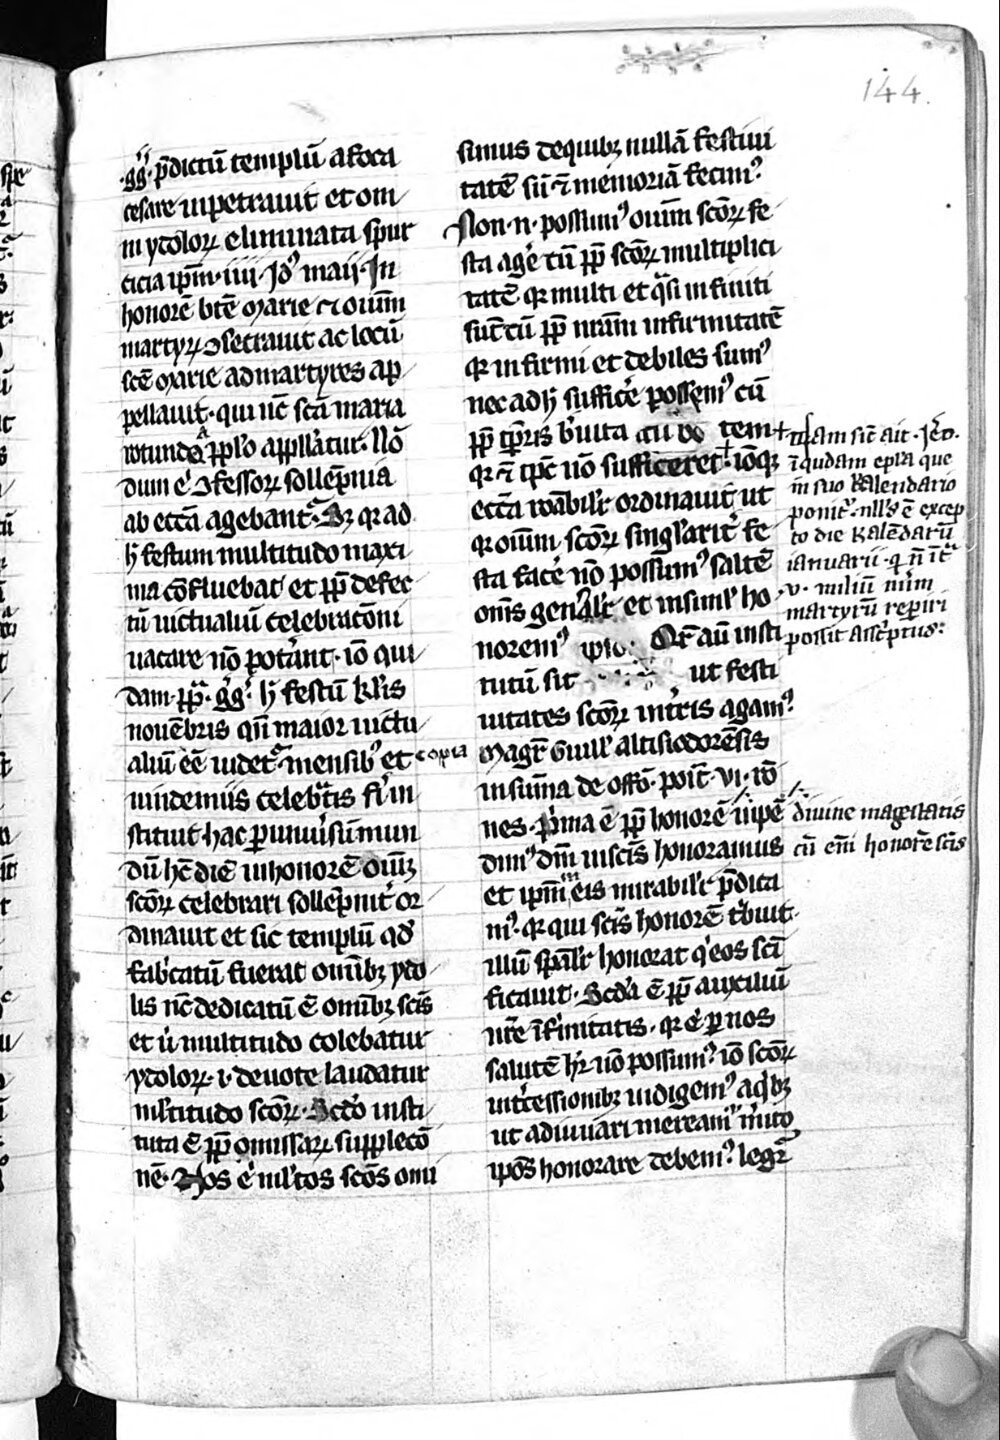 144.
.gg. p̄dictū templū a foca
cesare inpetrauit et om
ni ydoloꝝ eliminata spur
cicia ip̄m .iiii. ydꝰ maii. In
honorē bt̄e Marie ⁊ oium̄
martyrꝝ ꝯsecrauit ac locū
sc̄e Marie ad martyres ap
pellauit. qui nc̄ sc̄a maria
rotunda
dum eͥ ꝯfessoꝝ sollēpnia
ab ecc̄a agebant᷑. Sꝫ qꝛ ad
h̄ festum multitudo maxi
ma cōfluebat et ꝓp̄ defec
tū uictualiū celebratōni
uacare nō pot̄ant. iō qui
dam pp̄. gg̓. h̄ festū kl̄is
nouēbris qn̄ maior uictu
aliū eē uidet᷑ mensibꝰ et copia
uindemiis celebr̄tis fi'i in
stituit. hac ꝑ uniu'sū mun
dū hc̄ diē in honorē oiūꝫ
sc̄oꝝ celebrari sollēpnit̓ or
dinauit et sic templū qd̓
fab̓catū fuerat omībꝫ ydo
lis nc̄ dedicatū ē omībꝫ sc̄is
et ū multitudo colebatur
ydoloꝝ. i. deuote laudatur
ml̓titudo sc̄oꝝ. Scd̓o insti
tuta ē ꝓp̄ omissaꝝ supplecō
nē. Nos eͥ ml̓tos sc̄os omi
simus de quibꝫ nullā festiui
tatē siū ⁊ memoriā fecimꝰ
Non .n. possumꝰ oium̄ sc̄oꝝ fe
sta ag̓e tū ꝓp̄ sc̄oꝝ multiplici
tatē qꝛ multi et q̓si infiniti
sūt tū ꝓp̄ nr̄am infirmitatē
qꝛ infirmi et debiles sumꝰ
nec ad h̄ suffic̓e possemꝰ cū
ꝓp̄ tp̄ris tem
qꝛ ⁊ tp̄c nō sufficeret. iō qꝫ
ecc̄a roābil̓r ordinauit ut
qꝛ oium̄ sc̄oꝝ singl̓arit̓ fe
sta fac̓e nō possum̄ꝰ saltē
om̄s gen̓al̓r et insiml̓ ho
noremꝰ Qr̄ aū insti
tutū sit ut festi
uitates sc̄oꝝ in t̓ris agamꝰ
Magr̄ Guill̓ altisiodorēsis
in sūma de offō. poīt .vi. rō
nes. p̓ma ē ꝓp̄ honorē
dum̓ dm̄ in sc̄is honoramus
et ip̄m in eis mirabil̓r p̄dica
mꝰ. qꝛ qui sc̄is honorē t̓buit
illū spāl̓r honorat q̓ eos sc̄i
ficauit. Scd̓a ē ꝓp̄ auxiliū
nr̄e īfirmitatis. qꝛ eͥ ꝑ nos
salutē hr̄e nō possumꝰ iō sc̄oꝝ
int̓cessionibꝫ indigemꝰ a q̓bꝫ
ut adiuuari mereamꝰ m̓ito
ip̄os honorare debemꝰ. legr̄
nam sic̄ ait Jer̄o.
ī qudam epl̄a que
in suo kalendario
ponit᷑. null̓s ē excep
to die kalēdarū
ianuarii. q̓ n̄ īt̓
.v. miliū nūm
martyrū reperiri
possit ascr̓ptus.
diuine magestatis
cū eīn honorē sc̄is